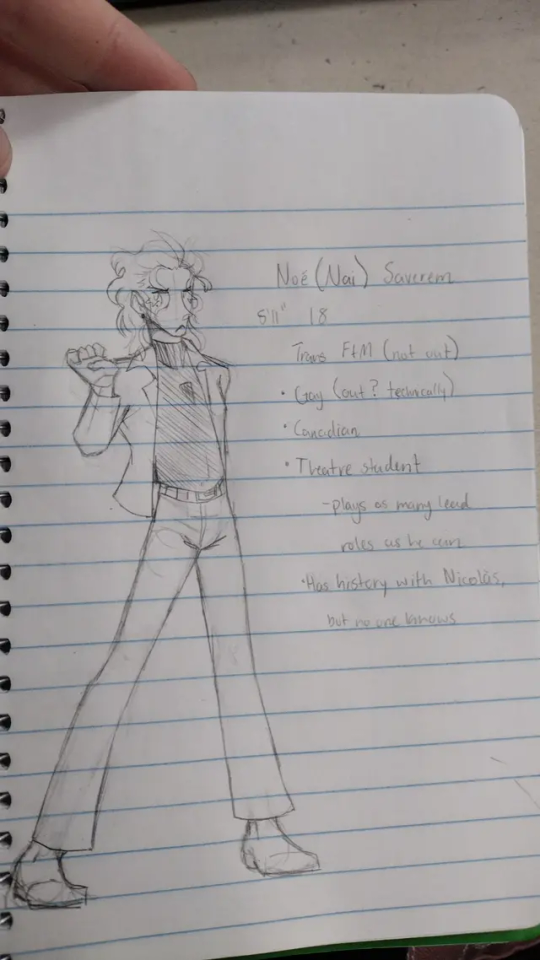 Noé (Nai) Saverem
5'11" 18
Trans FtM (not out)
• Gay (out? technically)
• Canadian
• Theatre student
-plays as many lead
roles as he can
•Has history with Nicolás,
but no one knows